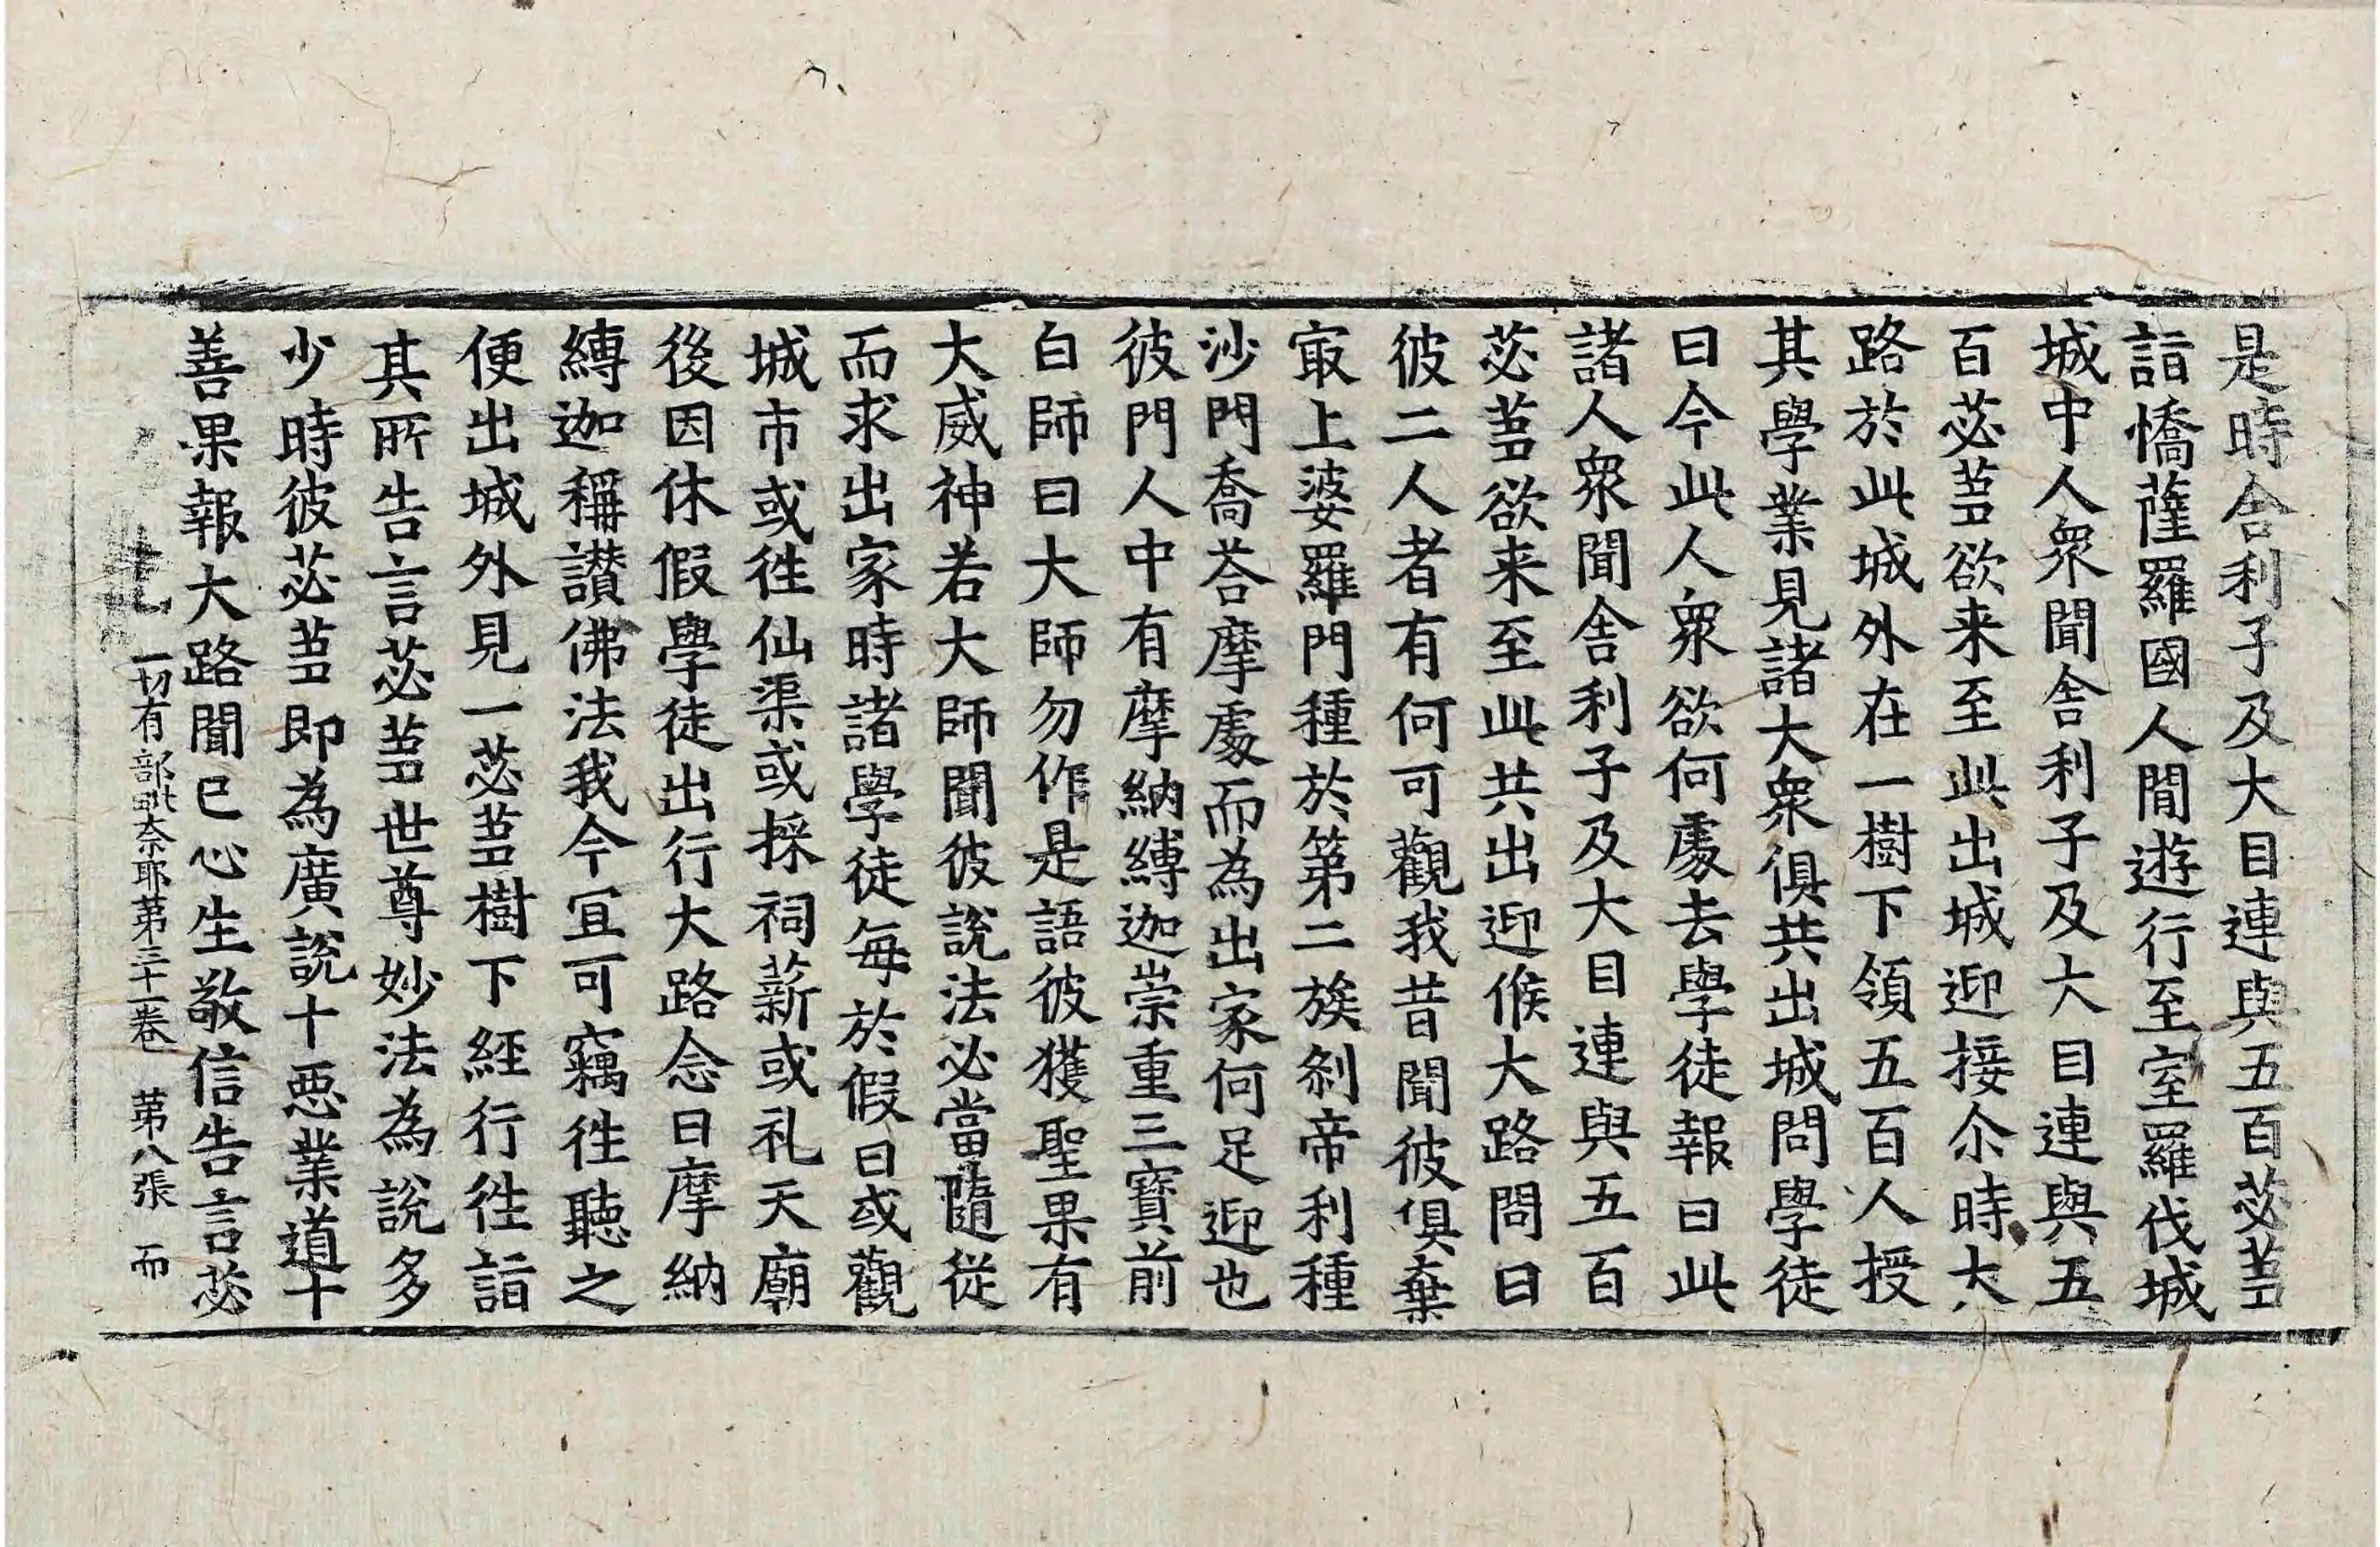 是時舎利子及大目連與五百苾蒭
詣憍薩羅國人閒遊行至室羅伐城
城中人衆聞舎利子及大目連與五
百苾蒭欲来至此出城迎接尒時大
路於此城外在一樹下領五百人授
其學業見諸大衆俱共出城問學徒
曰今此人衆欲何處去學徒報曰此
諸人衆聞舎利子及大目連與五百
苾蒭欲来至此共出迎候大路問曰
彼二人者有何可觀我昔聞彼俱棄
㝡上婆羅門種於第二族刹帝利種
沙門喬荅摩處而為出家何足迎也
彼門人中有摩納縛迦崇重三寶前
白師曰大師勿作是語彼獲聖果有
大威神若大師聞彼說法必當隨從
而求出家時諸學徒每於假日或觀
城市或徃仙渠或採祠薪或礼天廟
後因休假學徒出行大路念曰摩納
縛迦稱讃佛法我今冝可竊徃聽之
便出城外見一苾蒭樹下經行徃詣
其所告言苾蒭世尊妙法為說多
少時彼苾蒭即為廣說十惡業道十
善果報大路聞已心生敬信告言苾
一切有部毗奈耶第三十一卷 第八張 而